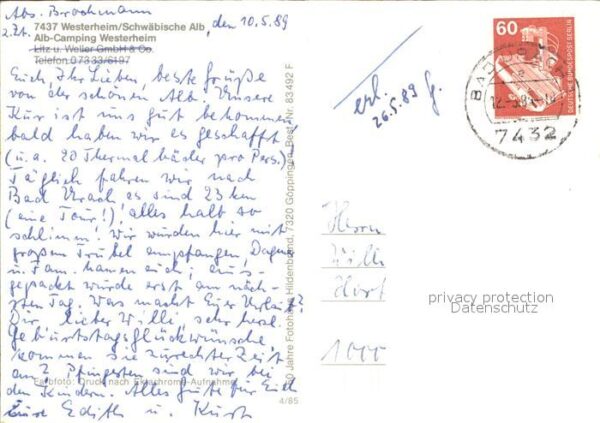 Abs. Brockmann
z.Zt. 7437 Westerheim/Schwäbische Alb, den 10.5.89
Alb-Camping Westerheim
Litz u. Weller GmbH & Co.
Telefon 0 73 33/6197
Euch, Ihr Lieben, beste Grüße
von der schönen Alb. Unsere
Kur ist uns gut bekommen,
bald haben wir es geschafft
(u.a. 20 Thermalbäder pro Pers.)!
Täglich fahren wir nach
Bad Urach, es sind 23 km
(eine Tour!), alles halb so
schlimm! Wir wurden hier mit
großem Trubel empfangen, Dagmar
u. Fam. kamen auch, aus-
gepackt wurde erst am näch-
sten Tag. Was macht Euer Verlaub?
Dir lieber Willi, sehr herzl.
Geburtstagsglückwünsche,
kommen sie zurechter Zeit
an? Pfingsten sind wir bei
den Kindern. Alles Gute für Euch
Eure Edith u. Kurt
Farbfoto: Druck nach Ektachrome-Aufnahme
4/85
50 Jahre Fotohaus Hildenbrand, 7320 Göppingen, Best.-Nr. 83 492 F
erl.
26.5.89
60
DEUTSCHE BUNDESPOST BERLIN
BAD URACH
12.-5.89-14
7432
Herrn
Willi
Horst
1000
privacy protection
Datenschutz